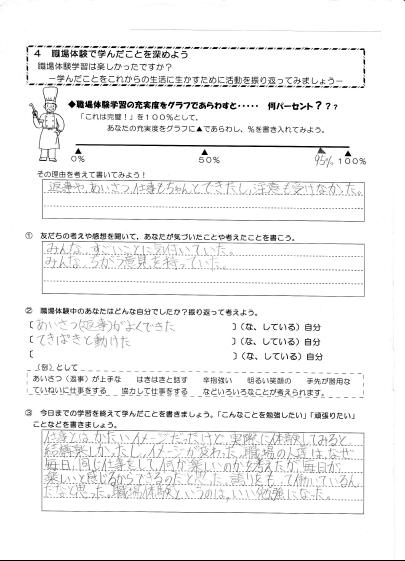 4　職場体験で学んだことを深めよう
職場体験学習は楽しかったですか？
－学んだことをこれからの生活に生かすために活動を振り返ってみましょう－
◆職場体験学習の充実度をグラフであらわすと・・・・・　何パーセント？？？
「これは完璧！」を１００％として、
あなたの充実度をグラフに▲であらわし、％を書き入れてみよう。
0%　50%　95%　100%
その理由を考えて書いてみよう！
返事や、あいさつ、仕事もちゃんとできたし、注意も受けなかった。
①　友だちの考えや感想を聞いて、あなたが気づいたことや考えたことを書こう。
みんな、すごいことに気付いていた。
みんな、ちがう意見を持っていた。
②　職場体験中のあなたはどんな自分でしたか？振り返って考えよう。
〔あいさつ(返事)がよくできた　〕（な、している）自分
〔てきぱきと動けた　〕（な、している）自分
〔　〕（な、している）自分
（例）として
あいさつ（返事）が上手な　はきはきと話す　辛抱強い　明るい笑顔の　手先が器用な
ていねいに仕事をする　協力して仕事をする　などいろいろなことが考えられます。
③　今日までの学習を終えて学んだことを書きましょう。「こんなことを勉強したい」「頑張りたい」
ことなどを書きましょう。
仕事とは、かたいイメージだったけど、実際に体験してみると
結構楽しかったし、イメージが変わった。職場の人達は、なぜ
毎日、同じ仕事をして、何が楽しいのかを考えたが、毎日が
楽しいと感じるからできるのだと思った。誇りをもって働いているん
だなと思った。職場体験というのは、いい勉強になった。